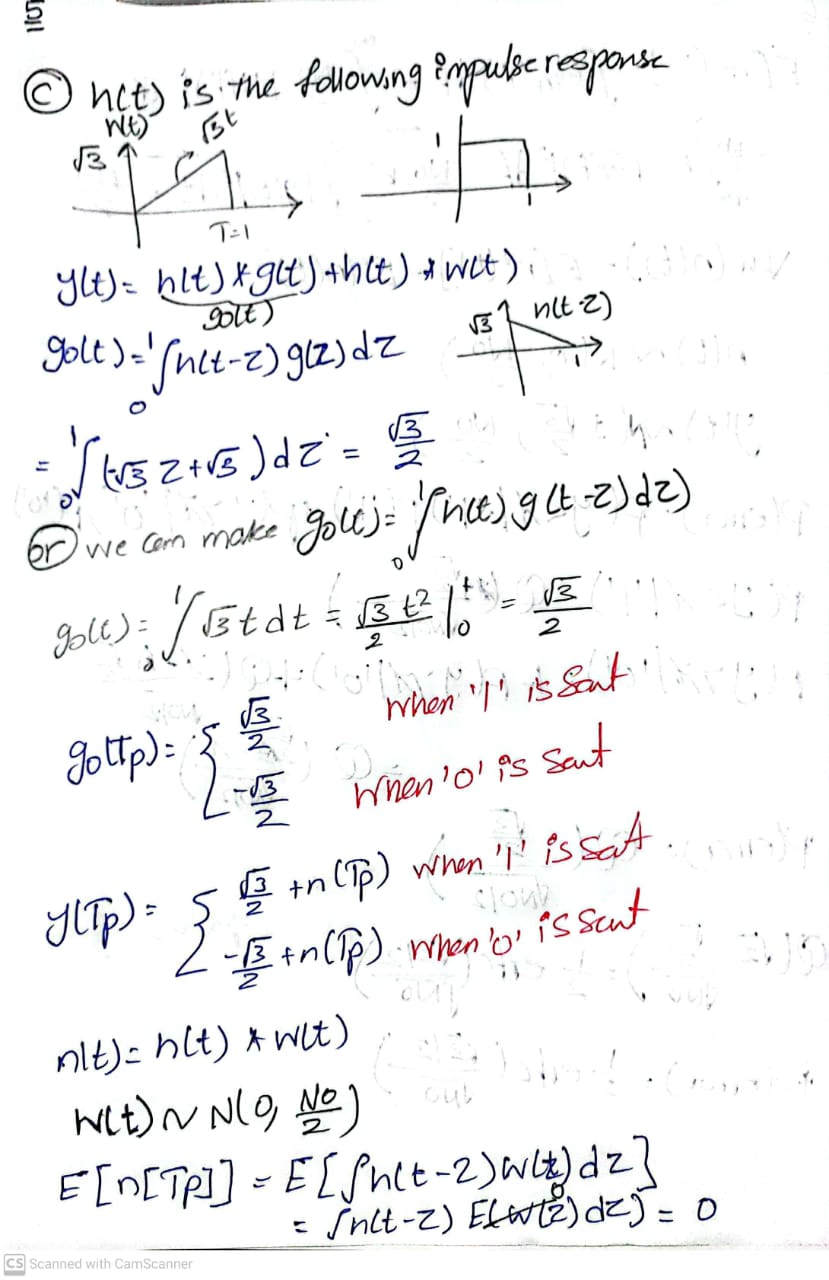 5
© h(t) is the following impulse response
h(t) √3t
√3 1
T=1 1
y(t) = h(t) * g(t) + h(t) * w(t)
go(t)
√3 h(t-z)
1
go(t) = ₀∫¹ h(t-z) g(z) dz
= ₀∫¹ (-√3 z + √3) dz = √3/2
or we can make go(t) = ₀∫¹ h(t) g(t-z) dz)
go(t) = ₀∫¹ √3 t dt = √3 t²/2 |₀¹ = √3/2
go(Tp) = { √3/2 when '1' is sent
-√3/2 when '0' is sent
y(Tp) = { √3/2 + n(Tp) when '1' is sent
-√3/2 + n(Tp) when '0' is sent
n(t) = h(t) * w(t)
w(t) ~ N(0, No/2)
E[n[Tp]] = E[∫h(t-z) w(z) dz]
= ∫h(t-z) E[w(z) dz] = 0
0
CS Scanned with CamScanner